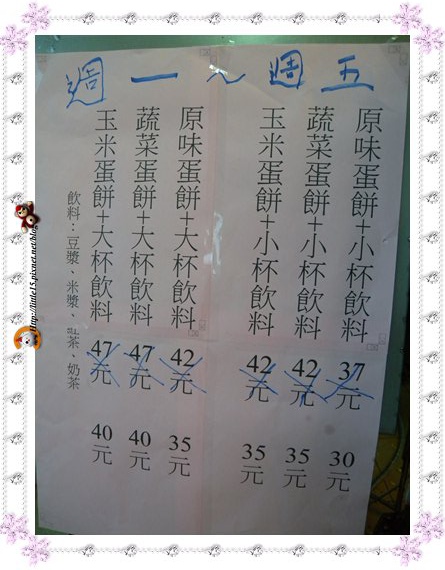 週一~週五
原味蛋餅+小杯飲料 37元 30元
蔬菜蛋餅+小杯飲料 42元 35元
玉米蛋餅+小杯飲料 42元 35元
原味蛋餅+大杯飲料 42元 35元
蔬菜蛋餅+大杯飲料 47元 40元
玉米蛋餅+大杯飲料 47元 40元
飲料：豆漿、米漿、茶、奶茶